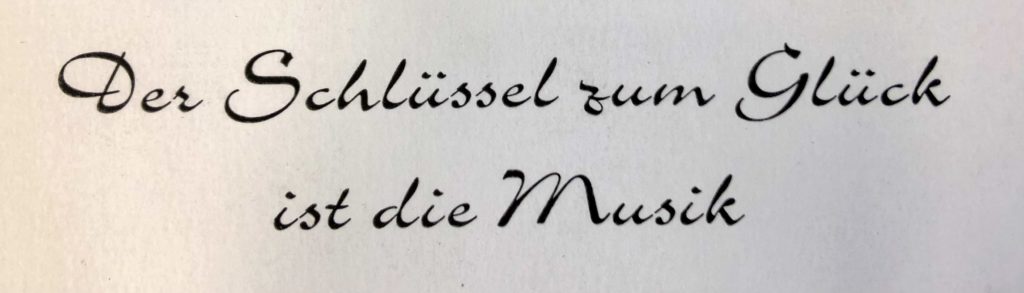 Der Schlüssel zum Glück
ist die Musik